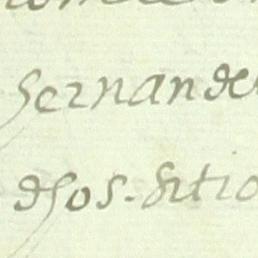 hernande
dhos. sitio